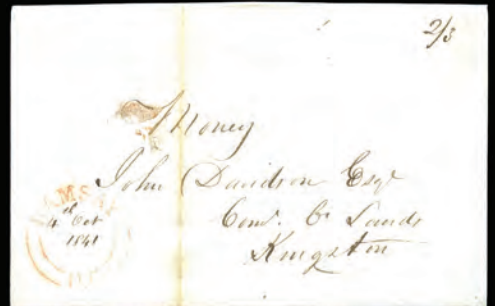 2/3
Money
John Davidson Esqr
Comr. Cr. Lands
Kingston
RAMSAY
4th Oct
1841